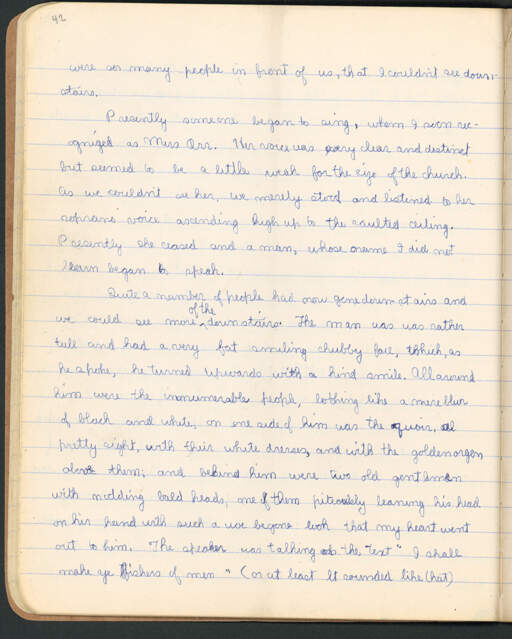 92
were so many people in front of us, that I couldn't see down-
stairs.
Presently someone began to sing, whom I soon rec-
ognized as Miss Orr. Her voice was very clear and distinct
but seemed to be a little weak for the size of the church.
As we couldn't see her, we merely stood and listened to her
soprano voice ascending high up to the vaulted ceiling.
Presently she ceased and a man, whose name I did not
learn began to speak.
Quite a number of people had now gone down stairs and
we could see more of the downstairs. The man was was rather
tall and had a very fat smiling chubby face, which, as
he spoke, he turned upwards with a kind smile. All around
him were the innumerable people, looking like a mere blur
of black and white, on one side of him was the quoir, a
pretty sight, with their white dresses, and with the golden organ
above them; and behind him were two old gentlemen
with nodding bald heads, one of them piteously leaning his head
on his hand with such a woe begone look that my heart went
out to him. The speaker was talking on the Text "I shall
make ye fishers of men" (or at least it sounded like that)